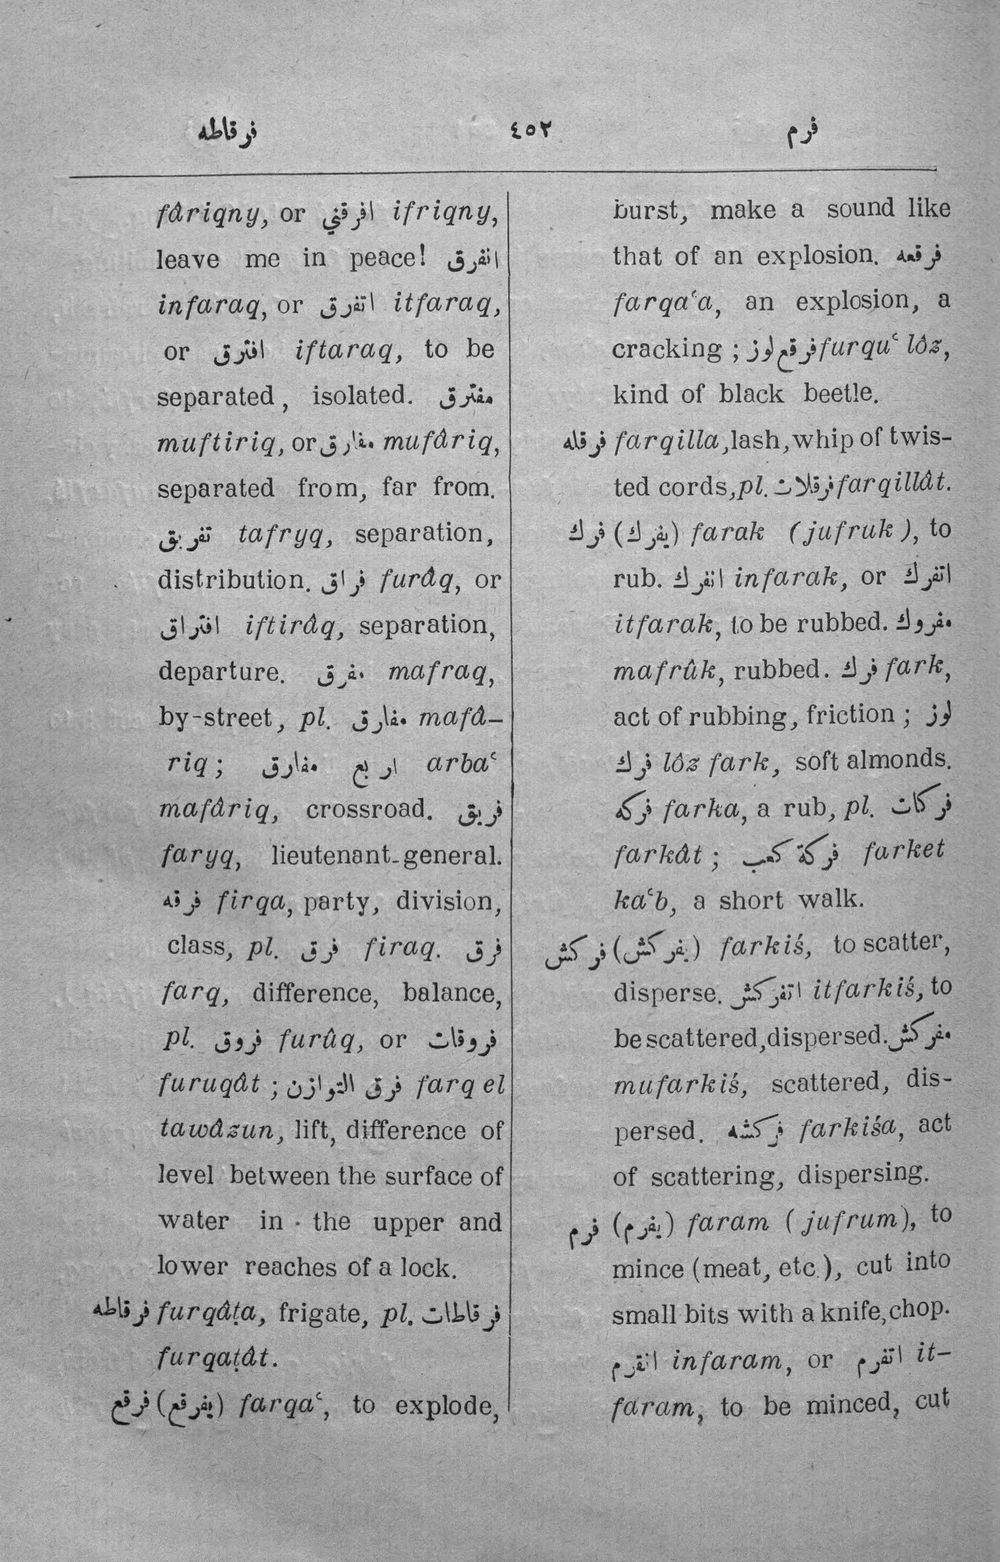 فرقاطه ٤٥٢ فرم
fâriqny, or افرقني ifriqny,
leave me in peace! انفرق
infaraq, or اتفرق itfaraq,
or افترق iftaraq, to be
separated, isolated. مفترق
muftiriq, or مفارق mufâriq,
separated from, far from.
تفريق tafryq, separation,
distribution. فراق furâq, or
افتراق iftirâq, separation,
departure. مفرق mafraq,
by-street, pl. مفارق mafâ-
riq; اربع مفارق arbaʿ
mafâriq, crossroad. فريق
faryq, lieutenant-general.
فرقه firqa, party, division,
class, pl. فرق firaq. فرق
farq, difference, balance,
pl. فروق furûq, or فروقات
furuqât; فرق التوازن farq el
tawâzun, lift, difference of
level between the surface of
water in the upper and
lower reaches of a lock.
فرقاطه furqâṭa, frigate, pl. فرقاطات
furqaṭât.
فرقع (يفرقع) farqaʿ, to explode,
burst, make a sound like
that of an explosion. فرقعه
farqaʿa, an explosion, a
cracking; فرقع لوز furquʿ lôz,
kind of black beetle.
فرقله farqilla, lash, whip of twis-
ted cords, pl. فرقلات farqillât.
فرك (يفرك) farak (jufruk), to
rub. انفرك infarak, or اتفرك
itfarak, to be rubbed. مفروك
mafrûk, rubbed. فرك fark,
act of rubbing, friction; لوز
فرك lôz fark, soft almonds.
فركه farka, a rub, pl. فركات
farkât; فركة كعب farket
kaʿb, a short walk.
فركش (يفركش) farkiś, to scatter,
disperse. اتفركش itfarkiś, to
be scattered, dispersed. مفركش
mufarkiś, scattered, dis-
persed. فركشه farkiśa, act
of scattering, dispersing.
فرم (يفرم) faram (jufrum), to
mince (meat, etc.), cut into
small bits with a knife, chop.
انفرم infaram, or اتفرم it-
faram, to be minced, cut